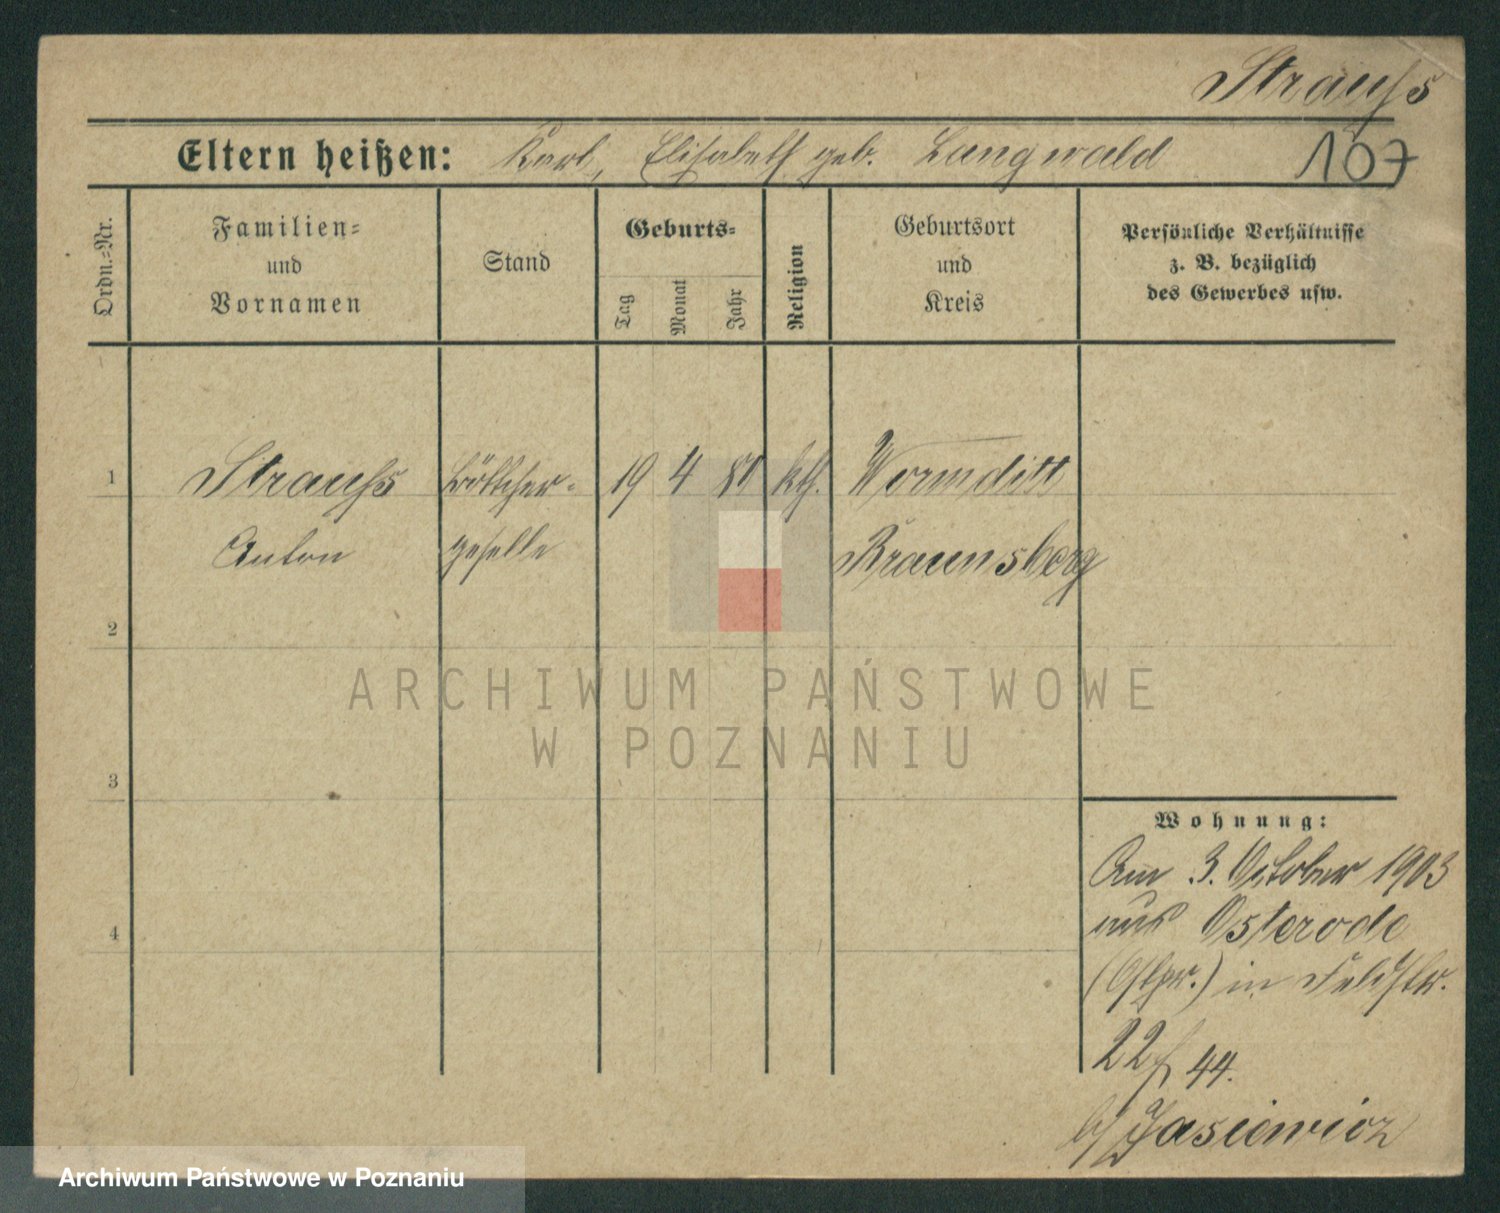 Strauss
Eltern heißen: Karl, Elisabeth geb. Langwald
107
Ordn.=Nr.
Familien=
und
Vornamen
Stand
Geburts=
Tag
Monat
Jahr
Religion
Geburtsort
und
Kreis
Persönliche Verhältnisse
z. B. bezüglich
des Gewerbes usw.
1
Strauss
Anton
Böttcher-
geselle
19 4 80 kth.
Wormditt
Braunsberg
2
3
4
Wohnung:
Am 3. October 1903
aus Osterode
(Ostpr.) in Feldstr.
22 44.
b/ Jasiewicz
ARCHIWUM PAŃSTWOWE
W POZNANIU
Archiwum Państwowe w Poznaniu